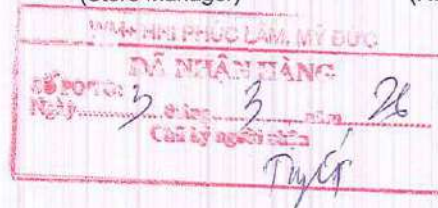 (Store Manager)
WM+ HNI PHÚC LÂM, MỸ ĐỨC
ĐÃ NHẬN HÀNG
Số PO
Ngày 3 tháng 3 năm 26
Chữ ký người nhận
Tuyết